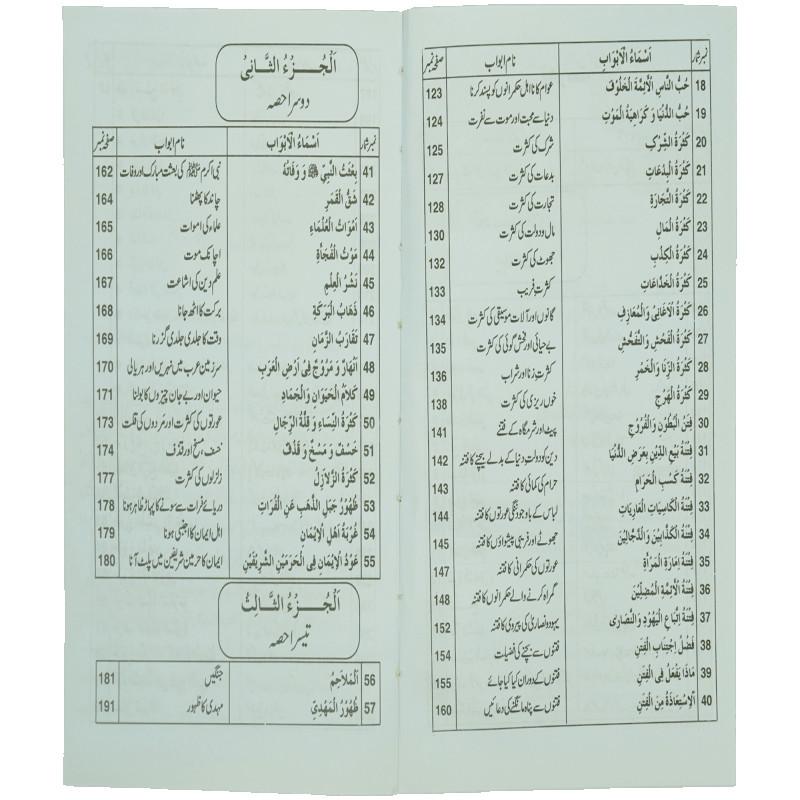 نمبر شمار اَسْمَاءُ الْاَبْوَابِ نام ابواب صفحہ نمبر
18 حُبُّ النَّاسِ الْاَئِمَّةَ الْخَلُوْفَ عوام کا نااہل حکمرانوں کو پسند کرنا 123
19 حُبُّ الدُّنْيَا وَ كَرَاهِيَةُ الْمَوْتِ دنیا سے محبت اور موت سے نفرت 124
20 كَثْرَةُ الشِّرْكِ شرک کی کثرت 125
21 كَثْرَةُ الْبِدْعَاتِ بدعات کی کثرت 127
22 كَثْرَةُ التِّجَارَةِ تجارت کی کثرت 128
23 كَثْرَةُ الْمَالِ مال و دولت کی کثرت 130
24 كَثْرَةُ الْكِذْبِ جھوٹ کی کثرت 132
25 كَثْرَةُ الْخَدَّاعَاتِ کثرتِ فریب 133
26 كَثْرَةُ الْاَغَانِىْ وَالْمَعَازِفِ گانوں اور آلات موسیقی کی کثرت 134
27 كَثْرَةُ الْفَحْشِ وَالتَّفَحُّشِ بے حیائی اور فحش گوئی کی کثرت 135
28 كَثْرَةُ الزِّنَا وَالْخَمْرِ کثرتِ زنا اور شراب 136
29 كَثْرَةُ الْهَرْجِ خوں ریزی کی کثرت 138
30 فِتَنُ الْبُطُوْنِ وَالْفُرُوْجِ پیٹ اور شرمگاہ کے فتنے 141
31 فِتْنَةُ بَيْعِ الدِّيْنِ بِعَرَضِ الدُّنْيَا دین کو دولتِ دنیا کے بدلے بیچنے کا فتنہ 142
32 فِتْنَةُ كَسْبِ الْحَرَامِ حرام کی کمائی کا فتنہ 143
33 فِتْنَةُ الْكَاسِيَاتِ الْعَارِيَاتِ لباس کے باوجود ننگی عورتوں کا فتنہ 144
34 فِتْنَةُ الْكَذَّابِيْنَ وَالدَّجَّالِيْنَ جھوٹے اور فریبی پیشواؤں کا فتنہ 145
35 فِتْنَةُ اِمَارَةِ الْمَرْأَةِ عورتوں کی حکمرانی کا فتنہ 147
36 فِتْنَةُ الْاَئِمَّةِ الْمُضِلِّيْنَ گمراہ کرنے والے حکمرانوں کا فتنہ 148
37 فِتْنَةُ اِتِّبَاعِ الْيَهُوْدِ وَالنَّصَارٰى یہود و نصاریٰ کی پیروی کا فتنہ 152
38 فَضْلُ اجْتِنَابِ الْفِتَنِ فتنوں سے بچنے کی فضیلت 154
39 مَاذَا يَفْعَلُ فِى الْفِتَنِ فتنوں کے دوران کیا کیا جائے 155
40 اَلْاِسْتِعَاذَةُ مِنَ الْفِتَنِ فتنوں سے پناہ مانگنے کی دعائیں 160
اَلْجُـــزْءُ الثَّـانِىْ
دوسرا حصہ
نمبر شمار اَسْمَاءُ الْاَبْوَابِ نام ابواب صفحہ نمبر
41 بِعْثَتُ النَّبِىِّ ﷺ وَ وَفَاتُهُ نبی اکرم ﷺ کی بعثت مبارک اور وفات 162
42 شَقُّ الْقَمَرِ چاند کا پھٹنا 164
43 اَمْوَاتُ الْعُلَمَاءِ علماء کی اموات 165
44 مَوْتُ الْفُجَأَةِ اچانک موت 166
45 نَشْرُ الْعِلْمِ علم دین کی اشاعت 167
46 ذَهَابُ الْبَرَكَةِ برکت کا اٹھ جانا 168
47 تَقَارُبُ الزَّمَانِ وقت کا جلدی جلدی گزرنا 169
48 اَنْهَارٌ وَ مُرُوْجٌ فِى اَرْضِ الْعَرَبِ سرزمین عرب میں نہریں اور ہریالی 170
49 كَلَامُ الْحَيَوَانِ وَالْجَمَادِ حیوان اور بے جان چیزوں کا بولنا 171
50 كَثْرَةُ النِّسَاءِ وَ قِلَّةُ الرِّجَالِ عورتوں کی کثرت اور مَردوں کی قلت 173
51 خَسْفٌ وَ مَسْخٌ وَ قَذْفٌ خسف، مسخ اور قذف 174
52 كَثْرَةُ الزَّلَازِلِ زلزلوں کی کثرت 177
53 ظُهُوْرُ جَبَلِ الذَّهَبِ عَنِ الْفُرَاتِ دریائے فرات سے سونے کا پہاڑ ظاہر ہونا 178
54 غُرْبَةُ اَهْلِ الْاِيْمَانِ اہل ایمان کا اجنبی ہونا 179
55 عَوْدُ الْاِيْمَانِ فِى الْحَرَمَيْنِ الشَّرِيْفَيْنِ ایمان کا حرمین شریفین میں پلٹ آنا 180
اَلْجُـــزْءُ الثَّـالِثُ
تیسرا حصہ
56 اَلْمَلَاحِمُ جنگیں 181
57 ظُهُوْرُ الْمَهْدِىِّ مہدی کا ظہور 191